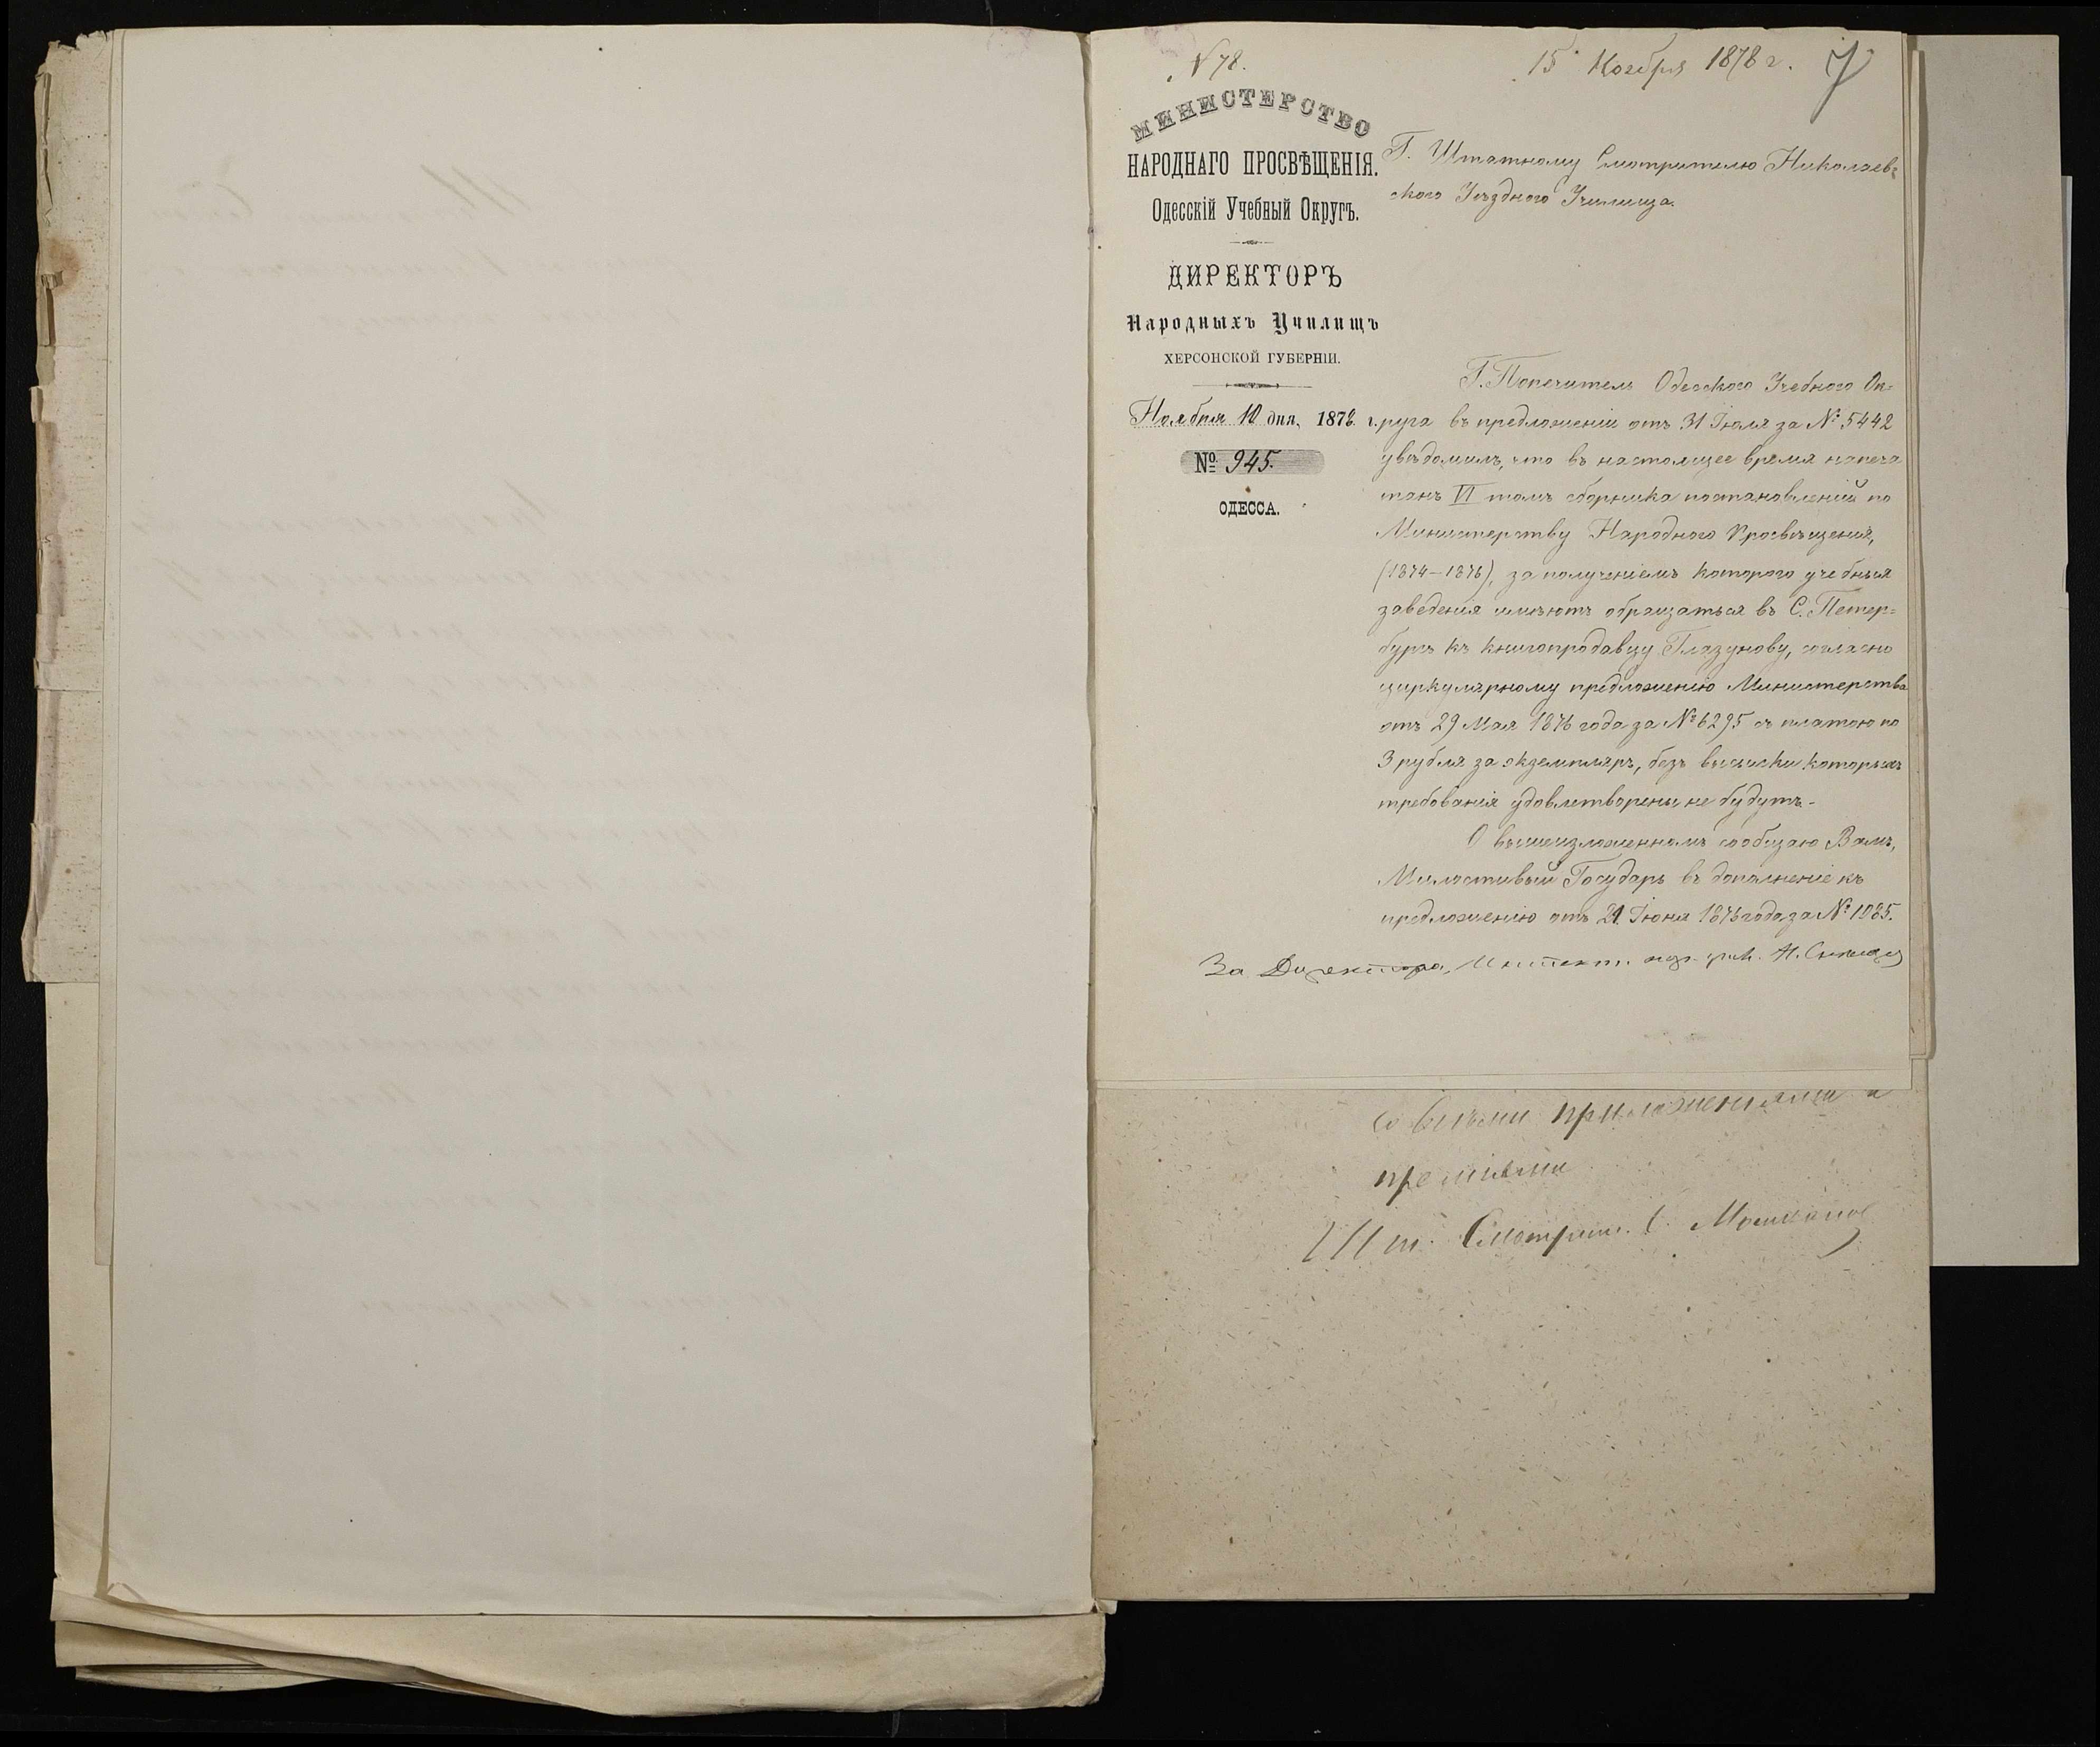 № 78.
15 Ноября 1878 г.
7
МИНИСТЕРСТВО
НАРОДНАГО ПРОСВѢЩЕНІЯ.
Одесскій Учебный Округъ.
ДИРЕКТОРЪ
Народныхъ Училищъ
ХЕРСОНСКОЙ ГУБЕРНІИ.
Ноября 10 дня, 1878 г.
№ 945.
ОДЕССА.
Г. Штатному Смотрителю Николаев-
скаго Уѣзднаго Училища.
Г. Попечитель Одесскаго Учебнаго Ок-
руга въ предложеніи отъ 31 Іюля за № 5442
увѣдомилъ, что въ настоящее время напеча
танъ VI томъ сборника постановленій по
Министерству Народнаго Просвѣщенія,
(1874-1876), за полученіемъ котораго учебныя
заведенія имѣютъ обращаться въ С. Петер-
бургъ къ книгопродавцу Глазунову, согласно
циркулярному предложенію Министерства
отъ 29 Мая 1876 года за № 6295 съ платою по
3 рубля за экземпляръ, безъ высылки которыхъ
требованія удовлетворены не будутъ.
О вышеизложенномъ сообщаю Вамъ,
Милостивый Государь въ дополненіе къ
предложенію отъ 21 Іюня 1876 года за № 1085.
За Директора, Инспект. нар. учил.
со всѣми приложеніями и
преміями
Шт. Смотрит.